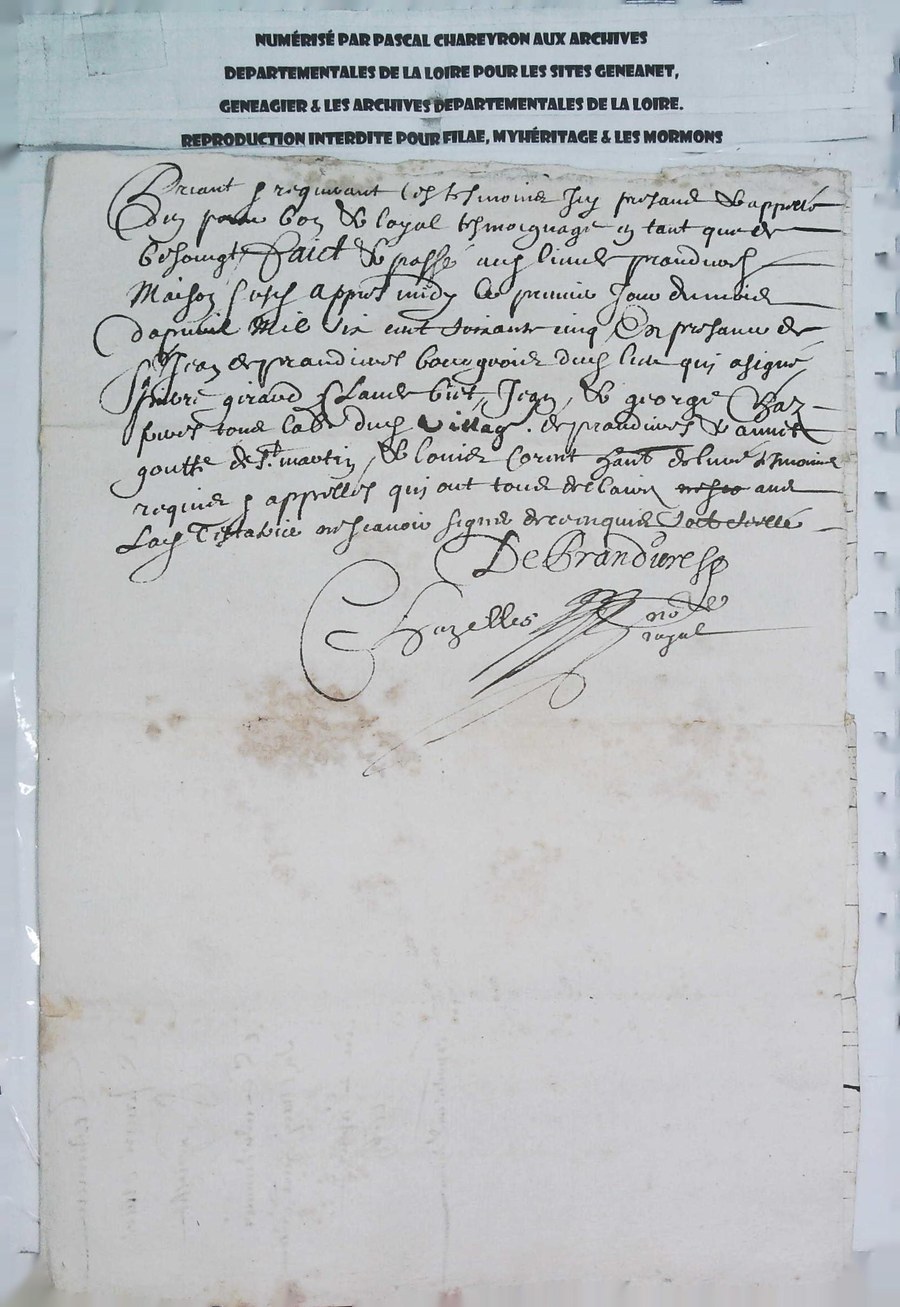 NUMÉRISÉ PAR PASCAL CHAREYRON AUX ARCHIVES
DEPARTEMENTALES DE LA LOIRE POUR LES SITES GENEANET,
GENEAGIER & LES ARCHIVES DEPARTEMENTALES DE LA LOIRE.
REPRODUCTION INTERDITE POUR FILAE, MYHÉRITAGE & LES MORMONS
Priant & requerant les tesmoins icy presans & appellés
d'en porter bon & loyal tesmoignage en tant que de
besoingt Faict & passé aud lieu de prandieres
Maison appres midy le premier Jour du mois
dapvril Mil six cent soixante cinq En presance de
Sr Jean de prandieres bourgeois dud lieu qui a signé
pierre giraud Jean & george
tous dud village de prandieres &
goutte de St martin & louis tesmoins
requis & appellés qui ont tous declairé avec
Lad Testatrice ne scavoir signer de ce enquis
De Prandieres p
Chazelles nore
royal